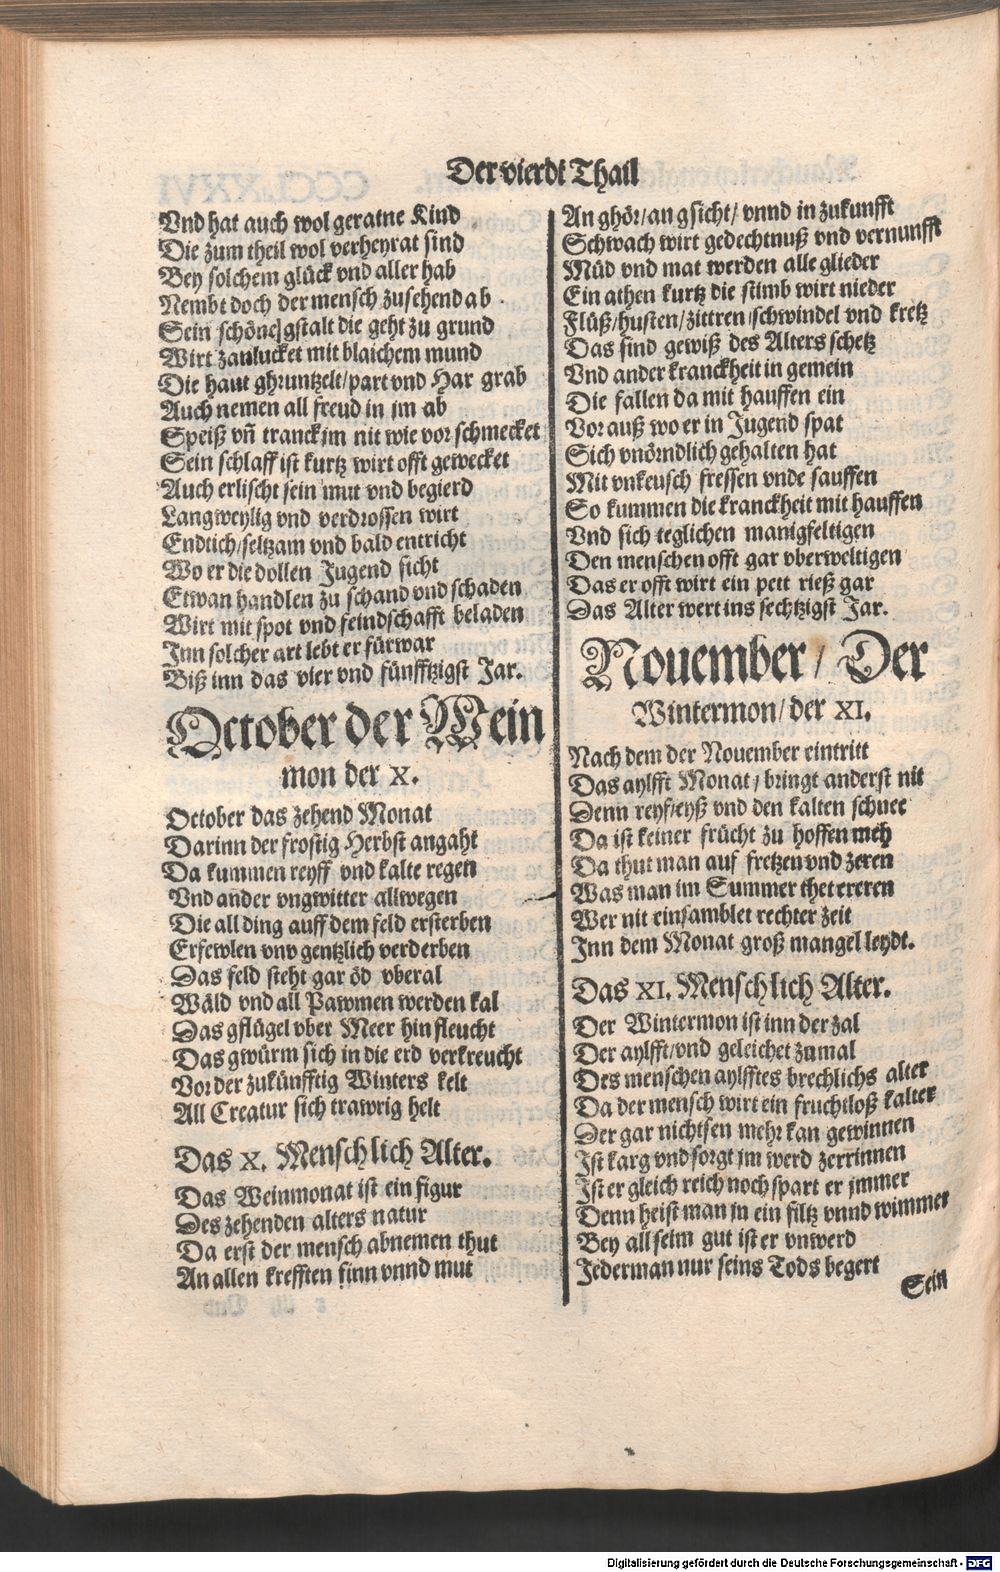 Der vierdt Thail
Vnd hat auch wol geratne Kind
Die zum theil wol verheyrat sind
Bey solchem glück vnd aller hab
Nembt doch der mensch zusehend ab
Sein schöne gstalt die geht zu grund
Wirt zanlucket mit blaichem mund
Die haut ghruntzelt/part vnd Har grab
Auch nemen all freud in jm ab
Speiß vñ tranck jm nit wie vor schmecket
Sein schlaff ist kurtz wirt offt gewecket
Auch erlischt sein mut vnd begierd
Langweylig vnd verdrossen wirt
Endtich/seltzam vnd bald entricht
Wo er die dollen Jugend sicht
Etwan handlen zu schand vnd schaden
Wirt mit spot vnd feindschafft beladen
Inn solcher art lebt er fürwar
Biß inn das vier vnd fünfftzigst Jar.
October der Wein
mon der X.
October das zehend Monat
Darinn der frostig Herbst angaht
Da kummen reyff vnd kalte regen
Vnd ander vngwitter allwegen
Die all ding auff dem feld ersterben
Erfewlen vnd gentzlich verderben
Das feld steht gar öd vberal
Wäld vnd all Pawmen werden kal
Das gflügel vber Meer hin fleucht
Das gwürm sich in die erd verkreucht
Vor der zukünfftig Winters kelt
All Creatur sich trawrig helt
Das X. Menschlich Alter.
Das Weinmonat ist ein figur
Des zehenden alters natur
Da erst der mensch abnemen thut
An allen krefften sinn vnnd mut
An ghör/an gsicht/ vnnd in zukunfft
Schwach wirt gedechtnuß vnd vernunfft
Müd vnd mat werden alle glieder
Ein athen kurtz die stimb wirt nieder
Flüß/husten/zittren/schwindel vnd kretz
Das sind gewiß des Alters schetz
Vnd ander kranckheit in gemein
Die fallen da mit hauffen ein
Vor auß wo er in Jugend spat
Sich vnörndlich gehalten hat
Mit vnkeusch fressen vnde sauffen
So kummen die kranckheit mit hauffen
Vnd sich teglichen manigfeltigen
Den menschen offt gar vberweltigen
Das er offt wirt ein pett rieß gar
Das Alter wert ins sechtzigst Jar.
Nouember/ Der
Wintermon/der XI.
Nach dem der Nouember eintritt
Das aylfft Monat/bringt anderst nit
Denn reyf/eyß vnd den kalten schnee
Da ist keiner frücht zu hoffen meh
Da thut man auf fretzen vnd zeren
Was man im Summer thet ereren
Wer nit einsamblet rechter zeit
Inn dem Monat groß mangel leydt.
Das XI. Menschlich Alter.
Der Wintermon ist inn der zal
Der aylfft/vnd geleichet zumal
Des menschen aylfftes brechlichs alter
Da der mensch wirt ein fruchtloß kalter
Der gar nichtsen mehr kan gewinnen
Ist karg vnd sorgt jm werd zerrinnen
Ist er gleich reich noch spart er jmmer
Denn heist man jn ein filtz vnnd wimmer
Bey all seim gut ist er vnwerd
Jederman nur seins Tods begert
Sein
Digitalisierung gefördert durch die Deutsche Forschungsgemeinschaft - DFG